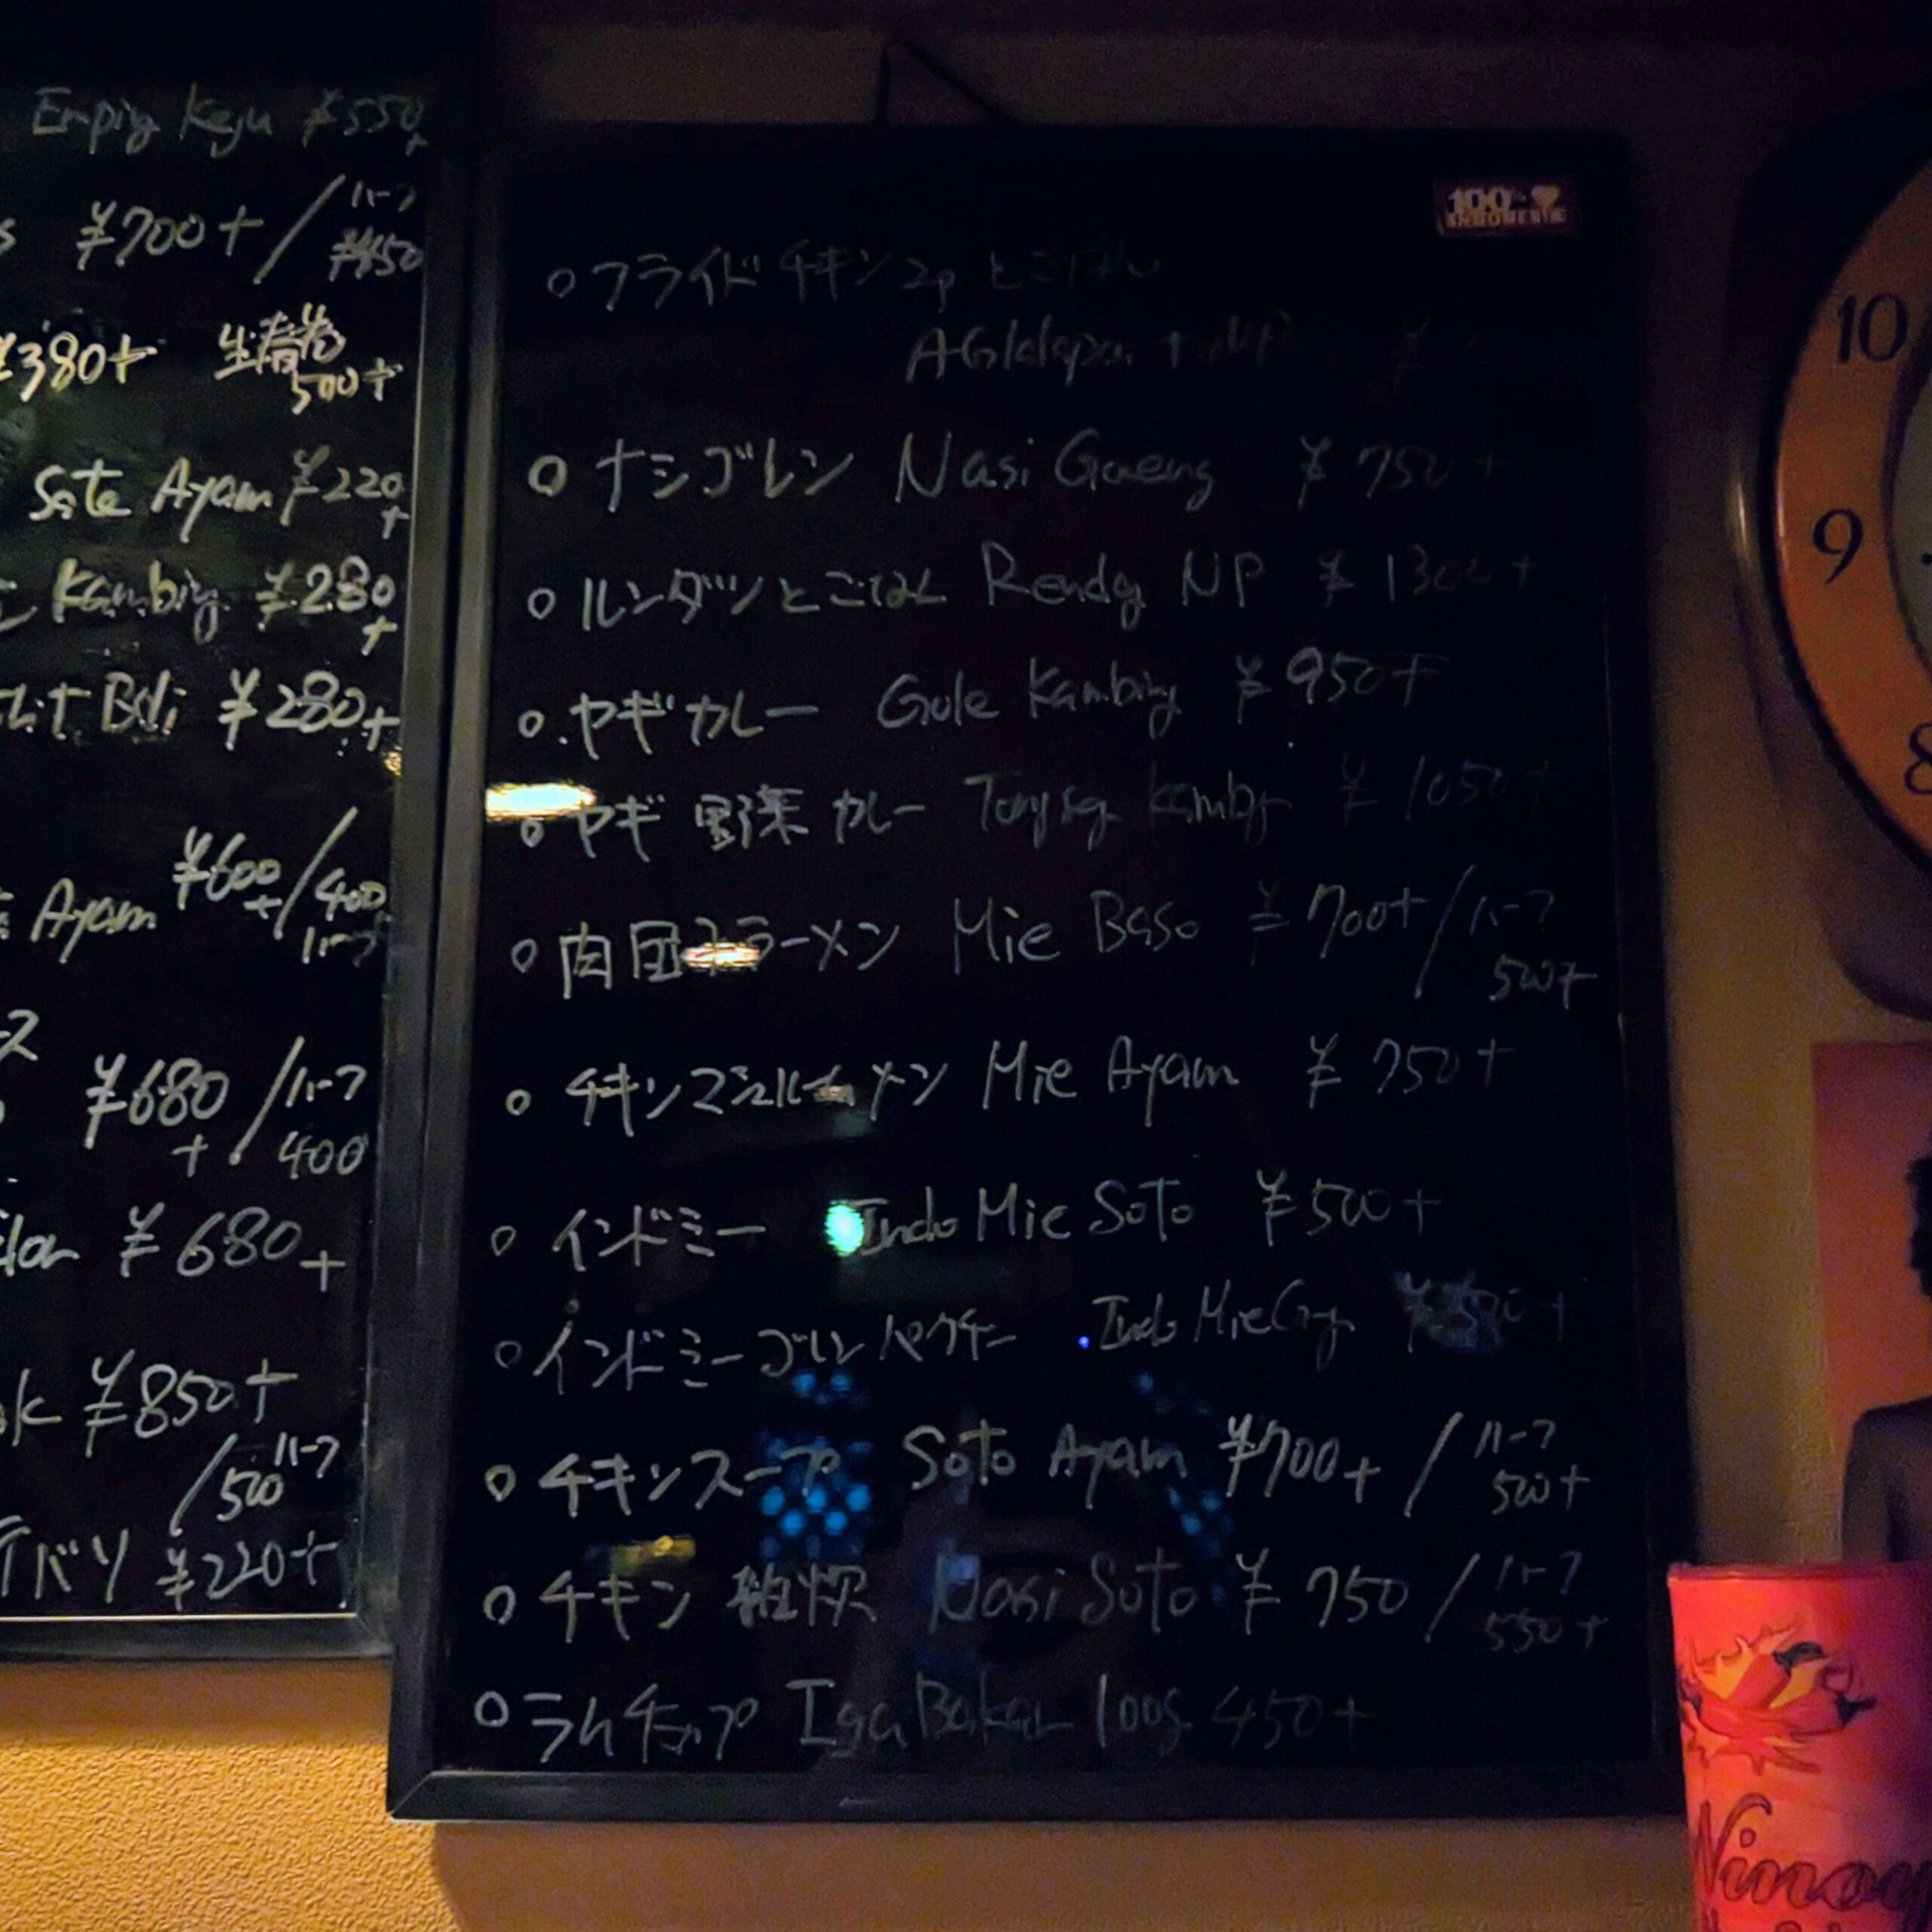 Emping Keju ¥550+
¥700+ / ハーフ ¥450
¥380+ 生春巻 500+
Sate Ayam ¥220+
Kambing ¥280+
¥280+
Ayam ¥600+ / 400 ハーフ
ス
¥680+ / ハーフ 400
¥680+
¥850+
/ 500 ハーフ
¥220+
100%
○ フライドチキン2p とごはん
+ NP ¥
○ ナシゴレン Nasi Goreng ¥750+
○ ルンダンとごはん Rendg NP ¥1300+
○ ヤギカレー Gule Kambing ¥950+
○ ヤギ野菜カレー Kambg ¥1050+
○ 肉団子ラーメン Mie Baso ¥700+ / ハーフ
500+
○ チキンマッシュルームメン Mie Ayam ¥750+
○ インドミー Indo Mie Soto ¥500+
○ インドミーゴレン パクチー Indo Mie Grg ¥500+
○ チキンスープ Soto Ayam ¥700+ / ハーフ
500+
○ チキン雑炊 Nasi Soto ¥750 / ハーフ
550+
○ ラムチョップ Iga Bakar 100g 450+
10
9
8
Ninoy